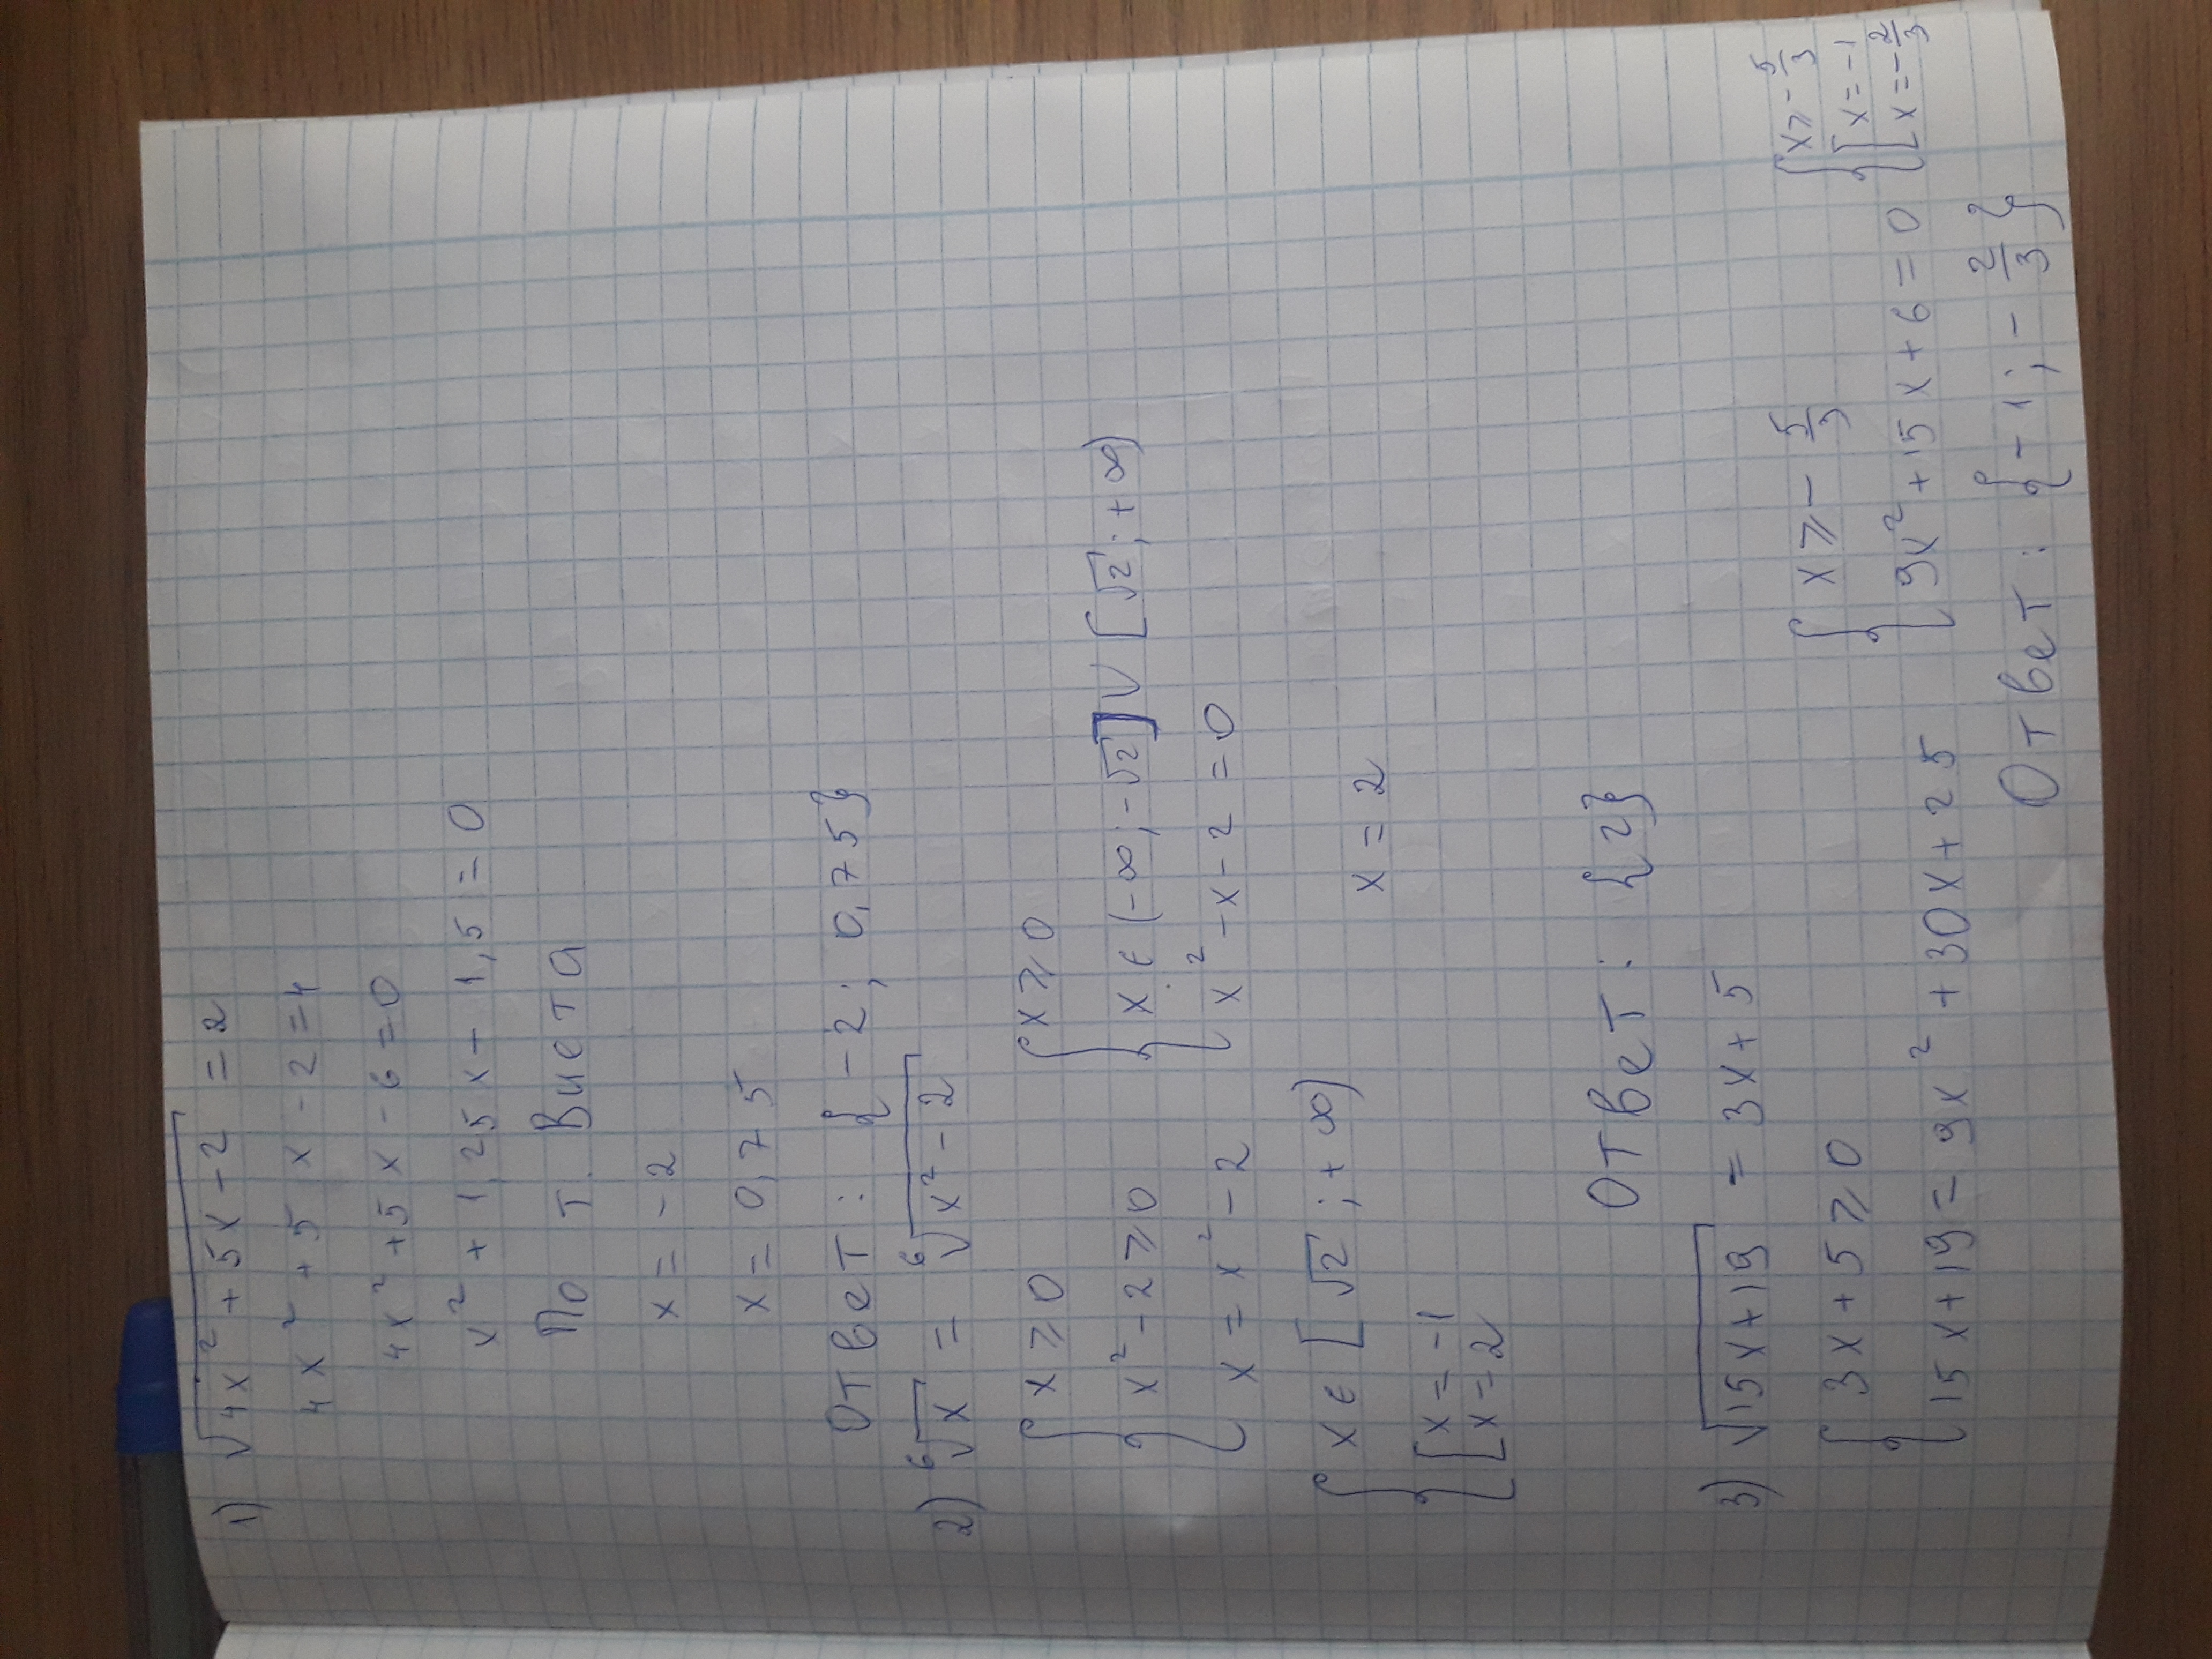 1) √4x² + 5x - 2 = 2
4x² + 5x - 2 = 4
4x² + 5x - 6 = 0
x² + 1,25x - 1,5 = 0
По т. Виета
x = -2
x = 0,75
Ответ: {-2; 0,75}
2) ⁶√x = ⁶√x² - 2
{ x ⩾ 0
x² - 2 ⩾ 0
x = x² - 2
{ x ⩾ 0
x ∈ (-∞; -√2] ∪ [√2; +∞)
x² - x - 2 = 0
{ x ∈ [√2; +∞)
[ x = -1
x = 2
x = 2
Ответ: {2}
3) √15x + 19 = 3x + 5
{ 3x + 5 ⩾ 0
15x + 19 = 9x² + 30x + 25
{ x ⩾ - 5/3
9x² + 15x + 6 = 0
{ x ⩾ - 5/3
[ x = -1
x = - 2/3
Ответ: {-1; - 2/3}